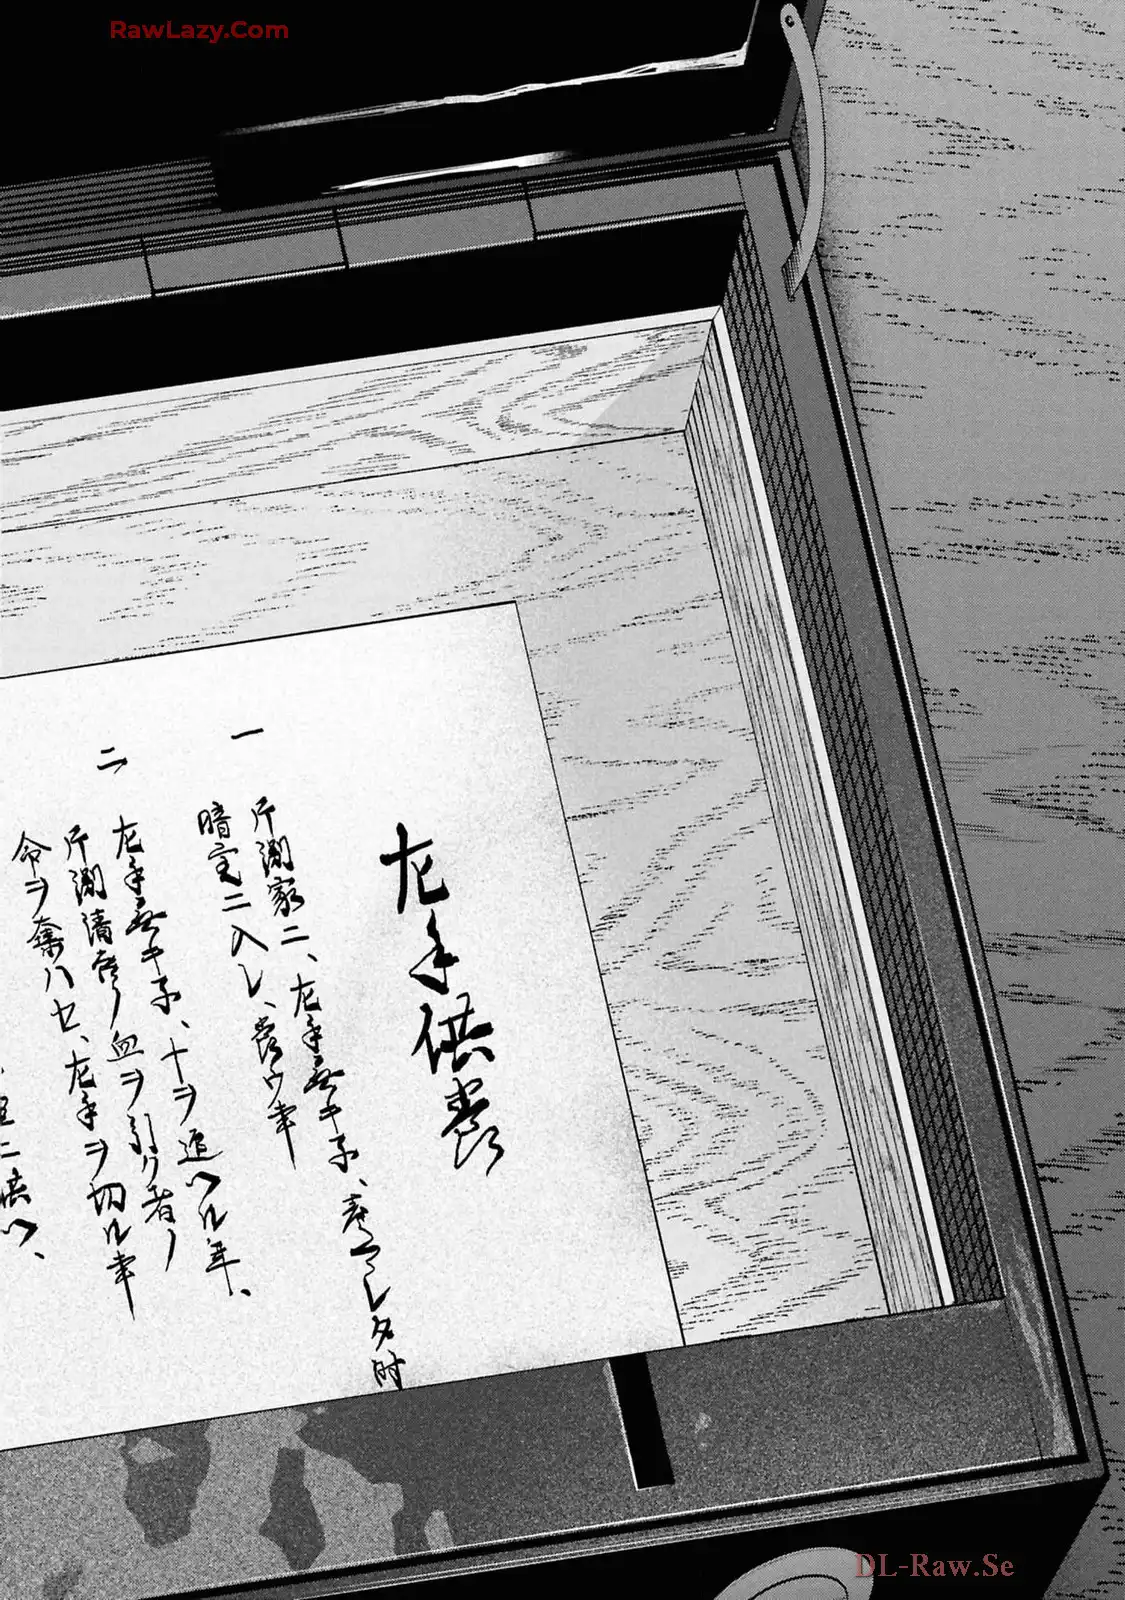 RawLazy.Com
左手供養
一
片淵家ニ、左手無キ子、産マレタ時
暗室ニ入レ、養ウ事
二
左手無キ子、十ヲ迎ヘル年、
片淵清吉ノ血ヲ引ク者ノ
命ヲ奪ハセ、左手ヲ切ル事
DL-Raw.Se